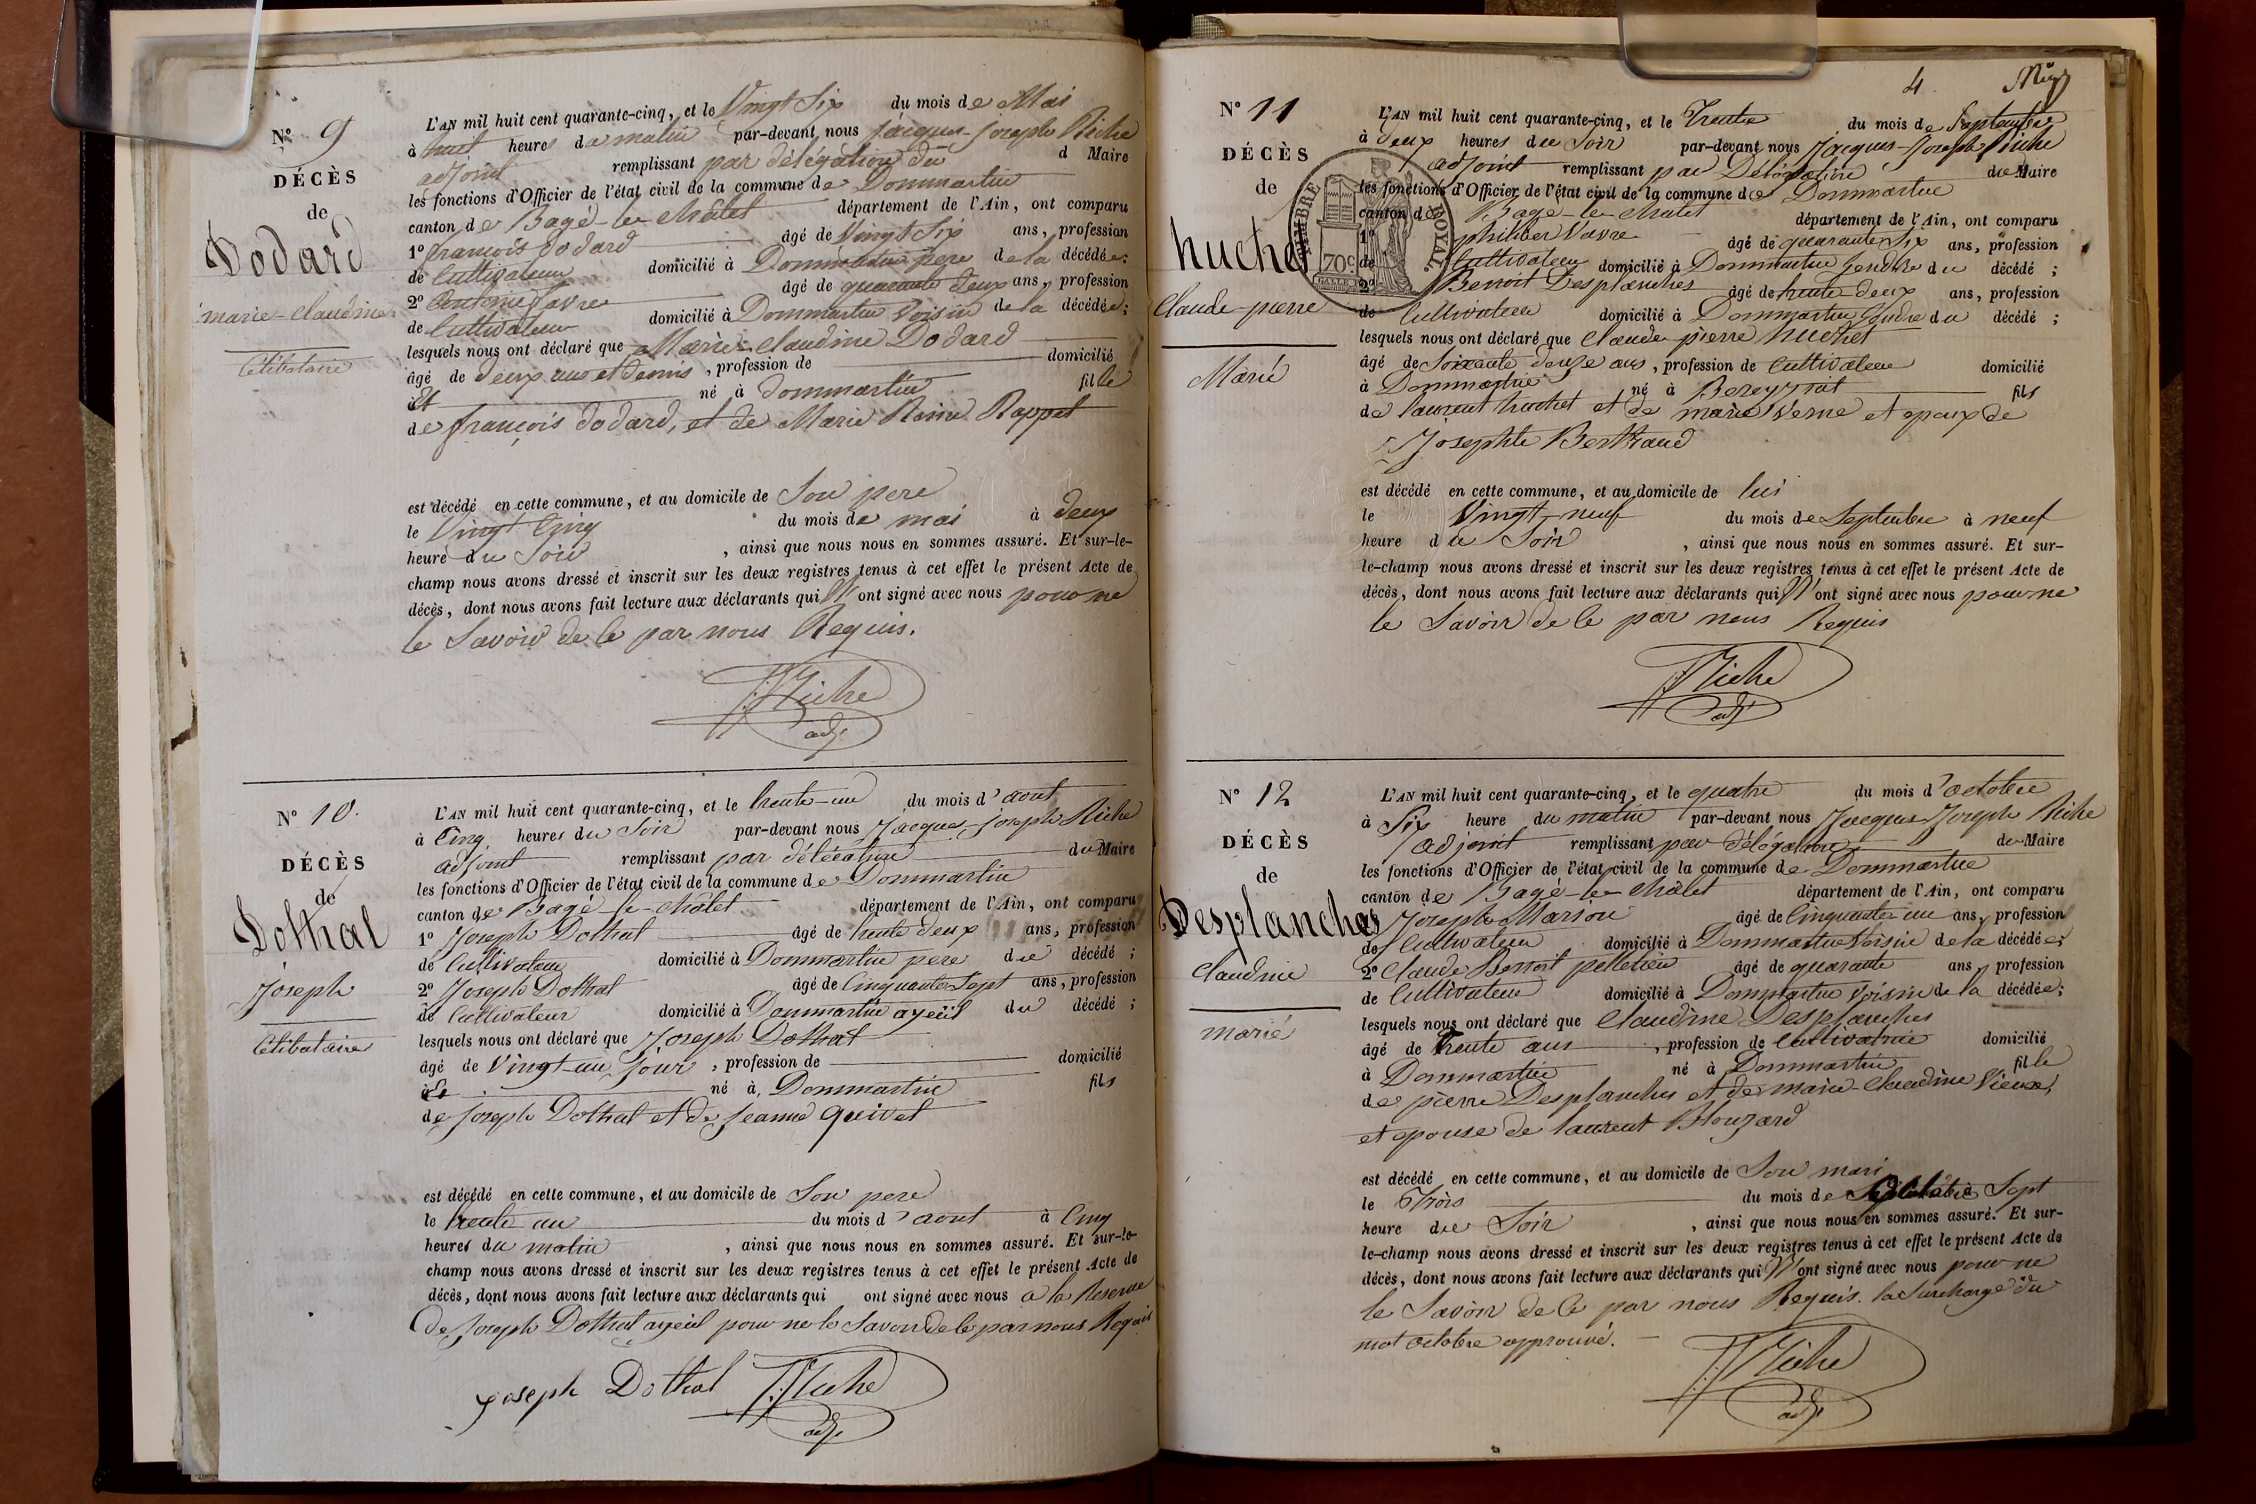 N° 9
DÉCÈS
de
Dodard
marie-Claudine
Célibataire
L'AN mil huit cent quarante-cinq, et le Vingt Six du mois de Mai
à huit heures du matin par-devant nous Jacques-joseph Riche
adjoint remplissant par délégation du d Maire
les fonctions d'Officier de l'état civil de la commune de Dommartin
canton de Bagé-le-Châlet département de l'Ain, ont comparu
1° françois dodard âgé de Vingt Six ans, profession
de Cultivateur domicilié à Dommartin pere de la décédée;
2° Antoine favre âgé de quarante deux ans, profession
de Cultivateur domicilié à Dommartin Voisin de la décédée;
lesquels nous ont déclaré que Marie-Claudine Dodard
âgé de deux ans et demis, profession de domicilié
et né à dommartin fille
de françois dodard, et de Marie Reine Rappet
est décédé en cette commune, et au domicile de Son pere
le Vingt Cinq du mois de mai à deux
heure du Soir, ainsi que nous nous en sommes assuré. Et sur-le-
champ nous avons dressé et inscrit sur les deux registres tenus à cet effet le présent Acte de
décès, dont nous avons fait lecture aux déclarants qui N'ont signé avec nous pour ne
le Savoir de ce par nous Requis.
JJRiche
adj.
N° 10.
DÉCÈS
de
Dothal
Joseph
Célibataire
L'AN mil huit cent quarante-cinq, et le trente-un du mois d'aout
à Cinq heures du Soir par-devant nous Jacques-joseph Riche
adjoint remplissant par délégation du Maire
les fonctions d'Officier de l'état civil de la commune de Dommartin
canton de Bagé-le-Châlet département de l'Ain, ont comparu
1° Joseph Dothal âgé de trente deux ans, profession
de Cultivateur domicilié à Dommartin pere du décédé;
2° Joseph Dothal âgé de Cinquante Sept ans, profession
de Cultivateur domicilié à Dommartin ayeül du décédé;
lesquels nous ont déclaré que Joseph Dothal
âgé de Vingt-un jour, profession de domicilié
à et né à Dommartin fils
de Joseph Dothal et de Jeanne quivet
est décédé en cette commune, et au domicile de Son pere
le trente un du mois d'aout à Cinq
heures du matin, ainsi que nous nous en sommes assuré. Et sur-le-
champ nous avons dressé et inscrit sur les deux registres tenus à cet effet le présent Acte de
décès, dont nous avons fait lecture aux déclarants qui ont signé avec nous a la Reserve
de Joseph Dothal ayeül pour ne le Savoir de ce par nous Requis
joseph Dothal JJRiche
adj.
4
N° 11
DÉCÈS
de
huchet
Claude-pierre
Marié
TIMBRE ROYAL.
70c
L'AN mil huit cent quarante-cinq, et le Trente du mois de Septembre
à deux heures du Soir par-devant nous Jacques-Joseph Riche
adjoint remplissant par Délégation du Maire
les fonctions d'Officier de l'état civil de la commune de Dommartin
canton de Bagé-le-Châlet département de l'Ain, ont comparu
1° philiber Vavre âgé de quarante Six ans, profession
de Cultivateur domicilié à Dommartin Gendre du décédé;
2° Benoit Desplanches âgé de trente-deux ans, profession
de Cultivateur domicilié à Dommartin Gendre du décédé;
lesquels nous ont déclaré que Claude pierre huchet
âgé de Soixante douze ans, profession de Cultivateur domicilié
à Dommartin né à Bereyziat fils
de laurent huchet et de marie Verne et epoux de
Josephte Berthaud
est décédé en cette commune, et au domicile de lui
le Vingt-neuf du mois de Septembre à neuf
heure du Soir, ainsi que nous nous en sommes assuré. Et sur-
le-champ nous avons dressé et inscrit sur les deux registres tenus à cet effet le présent Acte de
décès, dont nous avons fait lecture aux déclarants qui N'ont signé avec nous pour ne
le Savoir de ce par nous Requis
JJRiche
adj.
N° 12
DÉCÈS
de
Desplanches
Claudine
marié
L'AN mil huit cent quarante-cinq, et le quatre du mois d'octobre
à Six heure du matin par-devant nous Jacques Joseph Riche
adjoint remplissant par délégation du Maire
les fonctions d'Officier de l'état civil de la commune de Dommartin
canton de Bagé-le-Châlet département de l'Ain, ont comparu
Joseph Marion âgé de Cinquante-un ans, profession
de Cultivateur domicilié à Dommartin Voisin de la décédée;
2° Claude Benoit pelletier âgé de quarante ans, profession
de Cultivateur domicilié à Dommartin Voisin de la décédée;
lesquels nous ont déclaré que Claudine Desplanches
âgé de trente ans, profession de Cultivatrice domicilié
à Dommartin né à Dommartin fille
de pierre Desplanches et de marie Claudine Vieux,
et epouse de laurent Blouzard
est décédé en cette commune, et au domicile de Son mari
le Trois du mois de octobre à Sept
heure du Soir, ainsi que nous nous en sommes assuré. Et sur-
le-champ nous avons dressé et inscrit sur les deux registres tenus à cet effet le présent Acte de
décès, dont nous avons fait lecture aux déclarants qui N'ont signé avec nous pour ne
le Savoir de ce par nous Requis. la Surcharge du
mot octobre approuvé.
JJRiche
adj.